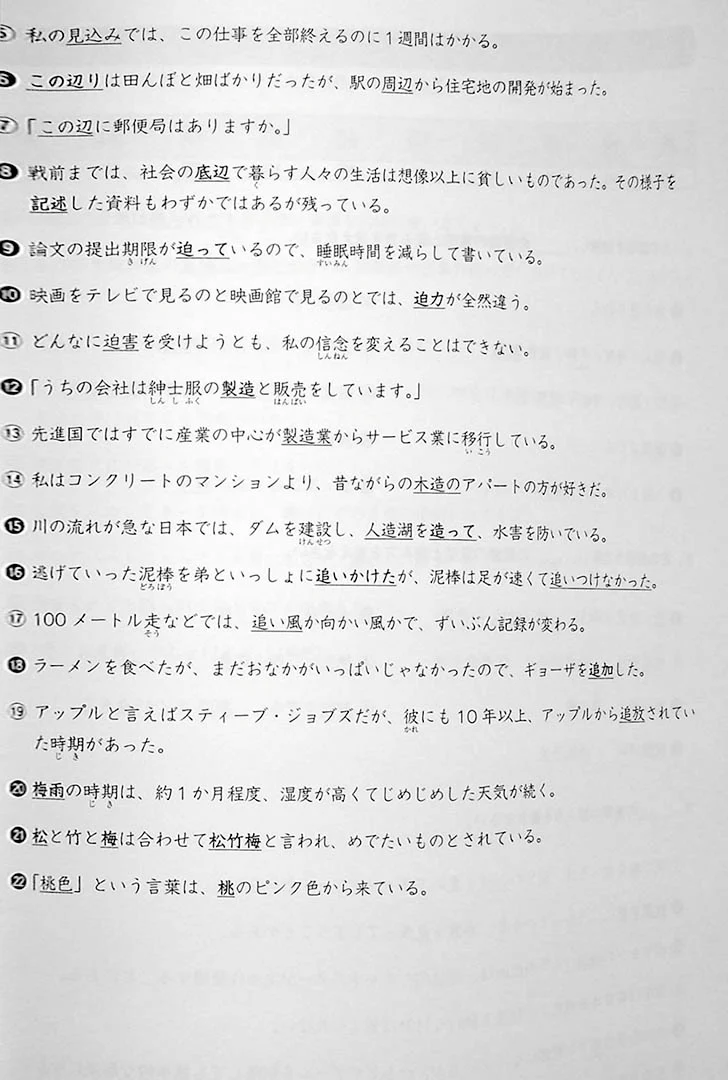 ⑤ 私の見込みでは、この仕事を全部終えるのに1週間はかかる。
❻ この辺りは田んぼと畑ばかりだったが、駅の周辺から住宅地の開発が始まった。
⑦「この辺に郵便局はありますか。」
❽ 戦前までは、社会の底辺で暮らす人々の生活は想像以上に貧しいものであった。その様子を
く
記述した資料もわずかではあるが残っている。
❾ 論文の提出期限が迫っているので、睡眠時間を減らして書いている。
き げん すいみん
❿ 映画をテレビで見るのと映画館で見るのとでは、迫力が全然違う。
⑪ どんなに迫害を受けようとも、私の信念を変えることはできない。
しんねん
⓬「うちの会社は紳士服の製造と販売をしています。」
しん し ふく はんばい
⑬ 先進国ではすでに産業の中心が製造業からサービス業に移行している。
い こう
⑭ 私はコンクリートのマンションより、昔ながらの木造のアパートの方が好きだ。
⓯ 川の流れが急な日本では、ダムを建設し、人造湖を造って、水害を防いでいる。
けんせつ
⓰ 逃げていった泥棒を弟といっしょに追いかけたが、泥棒は足が速くて追いつけなかった。
どろぼう
⑰ 100メートル走などでは、追い風か向かい風かで、ずいぶん記録が変わる。
そう
⓲ ラーメンを食べたが、まだおなかがいっぱいじゃなかったので、ギョーザを追加した。
⑲ アップルと言えばスティーブ・ジョブズだが、彼にも10年以上、アップルから追放されてい
かれ
た時期があった。
じ き
⓴ 梅雨の時期は、約1か月程度、湿度が高くてじめじめした天気が続く。
じ き
㉑ 松と竹と梅は合わせて松竹梅と言われ、めでたいものとされている。
㉒「桃色」という言葉は、桃のピンク色から来ている。